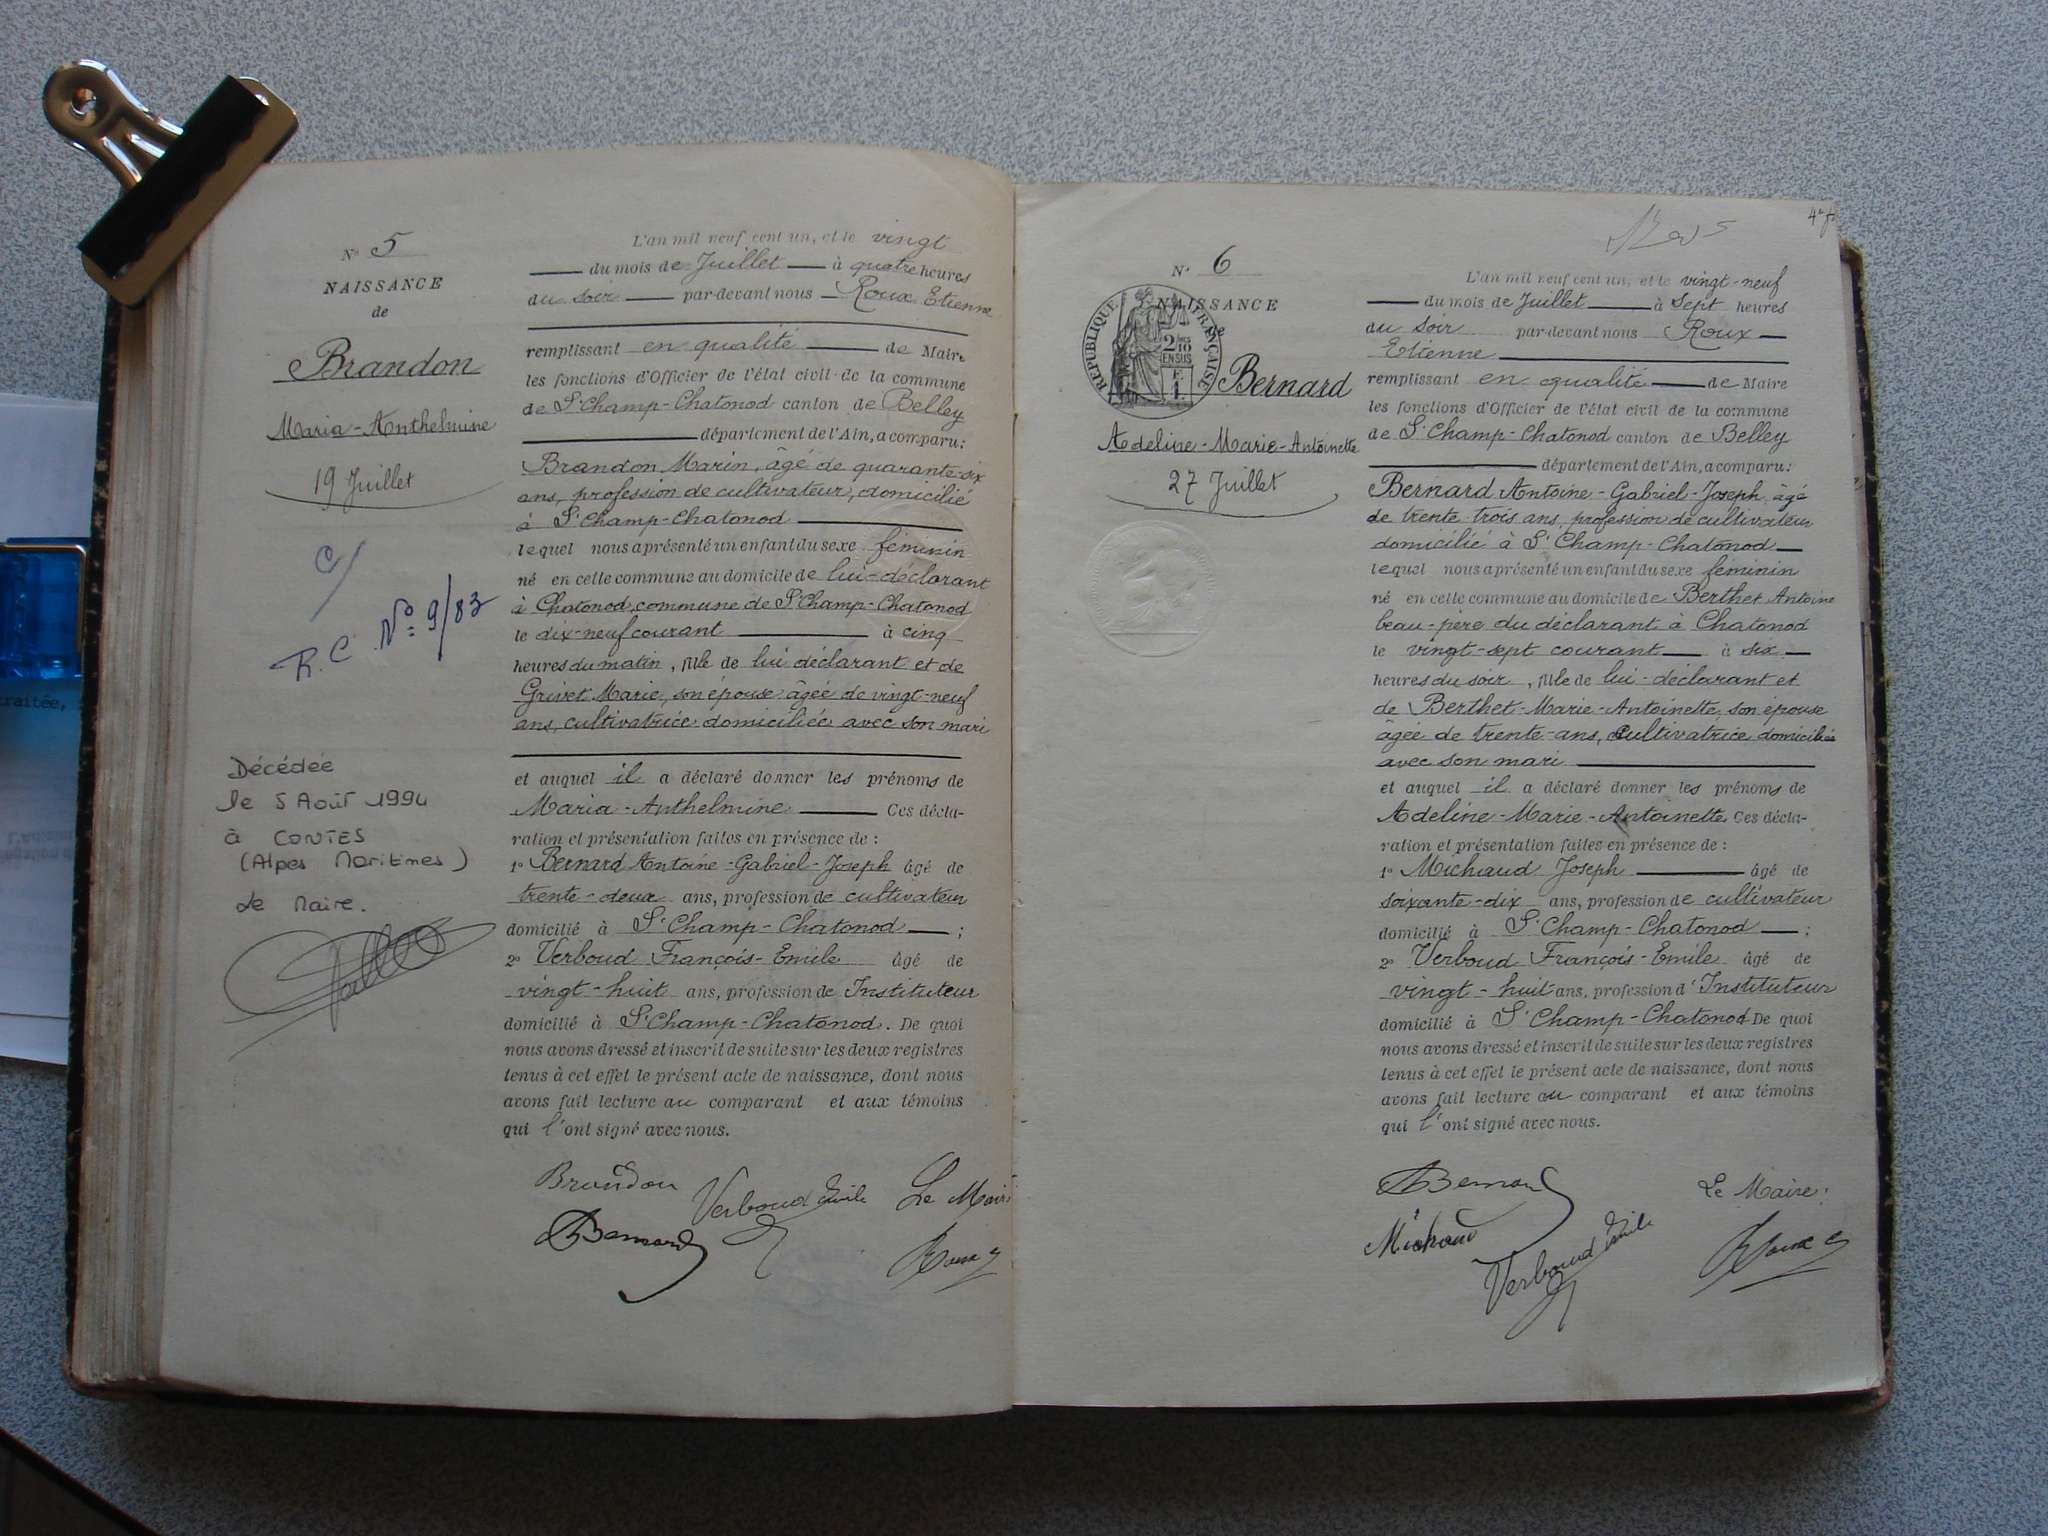 N° 5
NAISSANCE
de
Brandon
Maria-Anthelmine
19 Juillet
C/
R.C. N° 9/83
Décédée
le 5 Août 1994
à CONTES
(Alpes Maritimes)
Le Maire.
L'an mil neuf cent un, et le vingt
du mois de Juillet à quatre heures
du soir par-devant nous Roux Etienne
remplissant en qualité de Maire
les fonctions d'Officier de l'état civil de la commune
de St Champ-Chatonod canton de Belley
département de l'Ain, a comparu:
Brandon Marin, âgé de quarante-six
ans, profession de cultivateur, domicilié
à St Champ-Chatonod
lequel nous a présenté un enfant du sexe féminin
né en cette commune au domicile de lui-déclarant
à Chatonod, commune de St Champ-Chatonod
le dix-neuf courant à cinq
heures du matin, fille de lui déclarant et de
Grivet Marie, son épouse âgée de vingt-neuf
ans, cultivatrice domiciliée avec son mari
et auquel il a déclaré donner les prénoms de
Maria-Anthelmine Ces décla-
ration et présentation faites en présence de :
1° Bernard Antoine-Gabriel-Joseph âgé de
trente-deux ans, profession de cultivateur
domicilié à St Champ-Chatonod ;
2° Verboud François-Emile âgé de
vingt-huit ans, profession de Instituteur
domicilié à St Champ-Chatonod. De quoi
nous avons dressé et inscrit de suite sur les deux registres
tenus à cet effet le présent acte de naissance, dont nous
avons fait lecture au comparant et aux témoins
qui l'ont signé avec nous.
Brandon Verboud Emile Le Maire
ABernard Roux
4e f
N° 6
NAISSANCE
de
REPUBLIQUE FRANÇAISE
2/10
EN SUS
F.
1.
Bernard
Adeline-Marie-Antoinette
27 Juillet
L'an mil neuf cent un, et le vingt-neuf
du mois de Juillet à sept heures
du soir par-devant nous Roux
Etienne
remplissant en qualité de Maire
les fonctions d'Officier de l'état civil de la commune
de St Champ-Chatonod canton de Belley
département de l'Ain, a comparu:
Bernard Antoine-Gabriel-Joseph âgé
de trente trois ans, profession de cultivateur
domicilié à St Champ-Chatonod
lequel nous a présenté un enfant du sexe féminin
né en cette commune au domicile de Berthet Antoine
beau-père du déclarant à Chatonod
le vingt-sept courant à six
heures du soir, fille de lui-déclarant et
de Berthet-Marie-Antoinette, son épouse
âgée de trente-ans, cultivatrice domiciliée
avec son mari
et auquel il a déclaré donner les prénoms de
Adeline-Marie-Antoinette. Ces décla-
ration et présentation faites en présence de :
1° Michaud Joseph âgé de
soixante-dix ans, profession de cultivateur
domicilié à St Champ-Chatonod ;
2° Verboud François-Emile âgé de
vingt-huit ans, profession d'Instituteur
domicilié à St Champ-Chatonod De quoi
nous avons dressé et inscrit de suite sur les deux registres
tenus à cet effet le présent acte de naissance, dont nous
avons fait lecture au comparant et aux témoins
qui l'ont signé avec nous.
ABernard Le Maire:
Michaud Verboud Emile Roux
traitée,